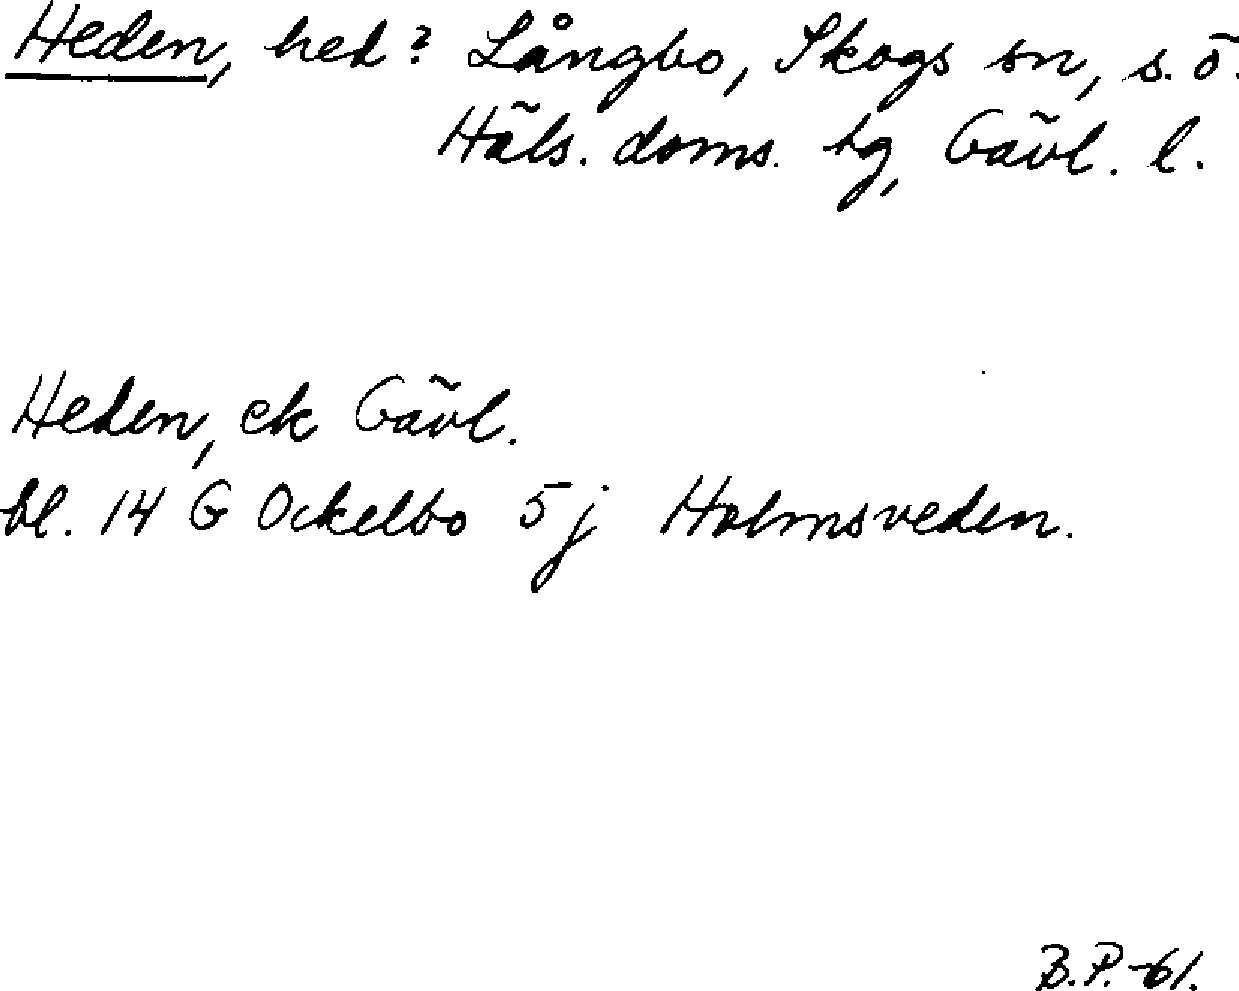 Heden, hed? Långbo, Skogs sn, s.ö.
Häls. doms. hg, Gävl. l.
Heden, ek Gävl.
bl. 14 G Ockelbo 5 j Holmsveden.
B.P.-61.